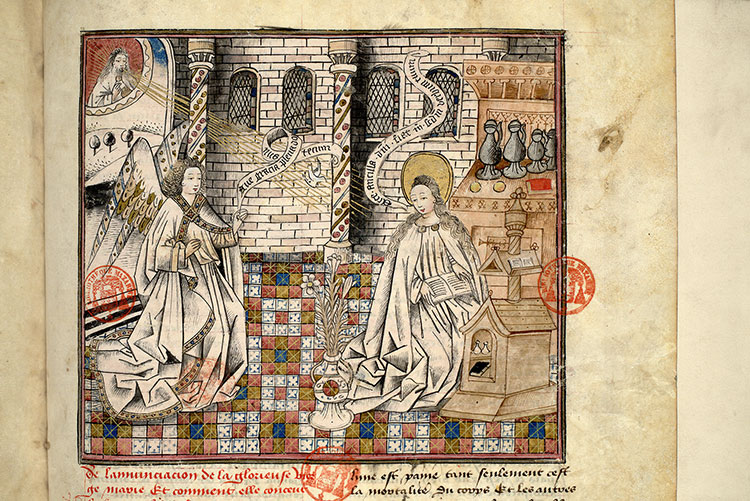 Aue gracia plena do
minus
tecum
Ecce Ancilla dni fiat
verbum tuum
De lanunciacion de la glorieuse vier
ge marie Et comment elle conceut
lune est pame tant seulement cest
la mortalite du corps Et les autres